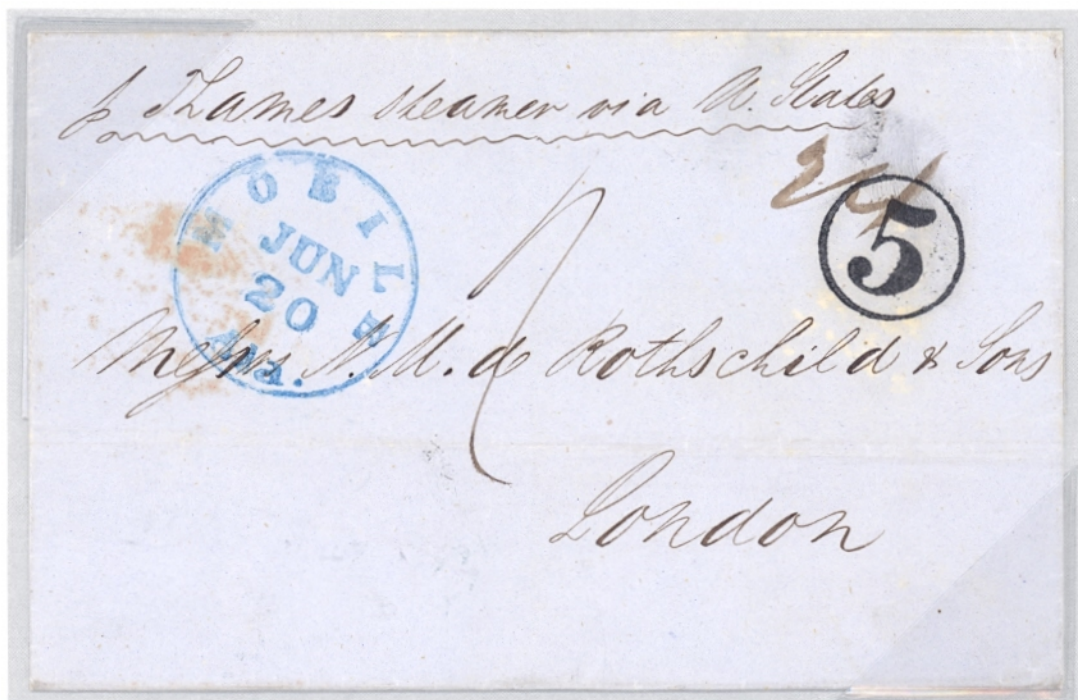 p Thames Steamer via U. States
MOBILE
JUN
20
ALA.
5
Messrs N. M. de Rothschild & Sons
London